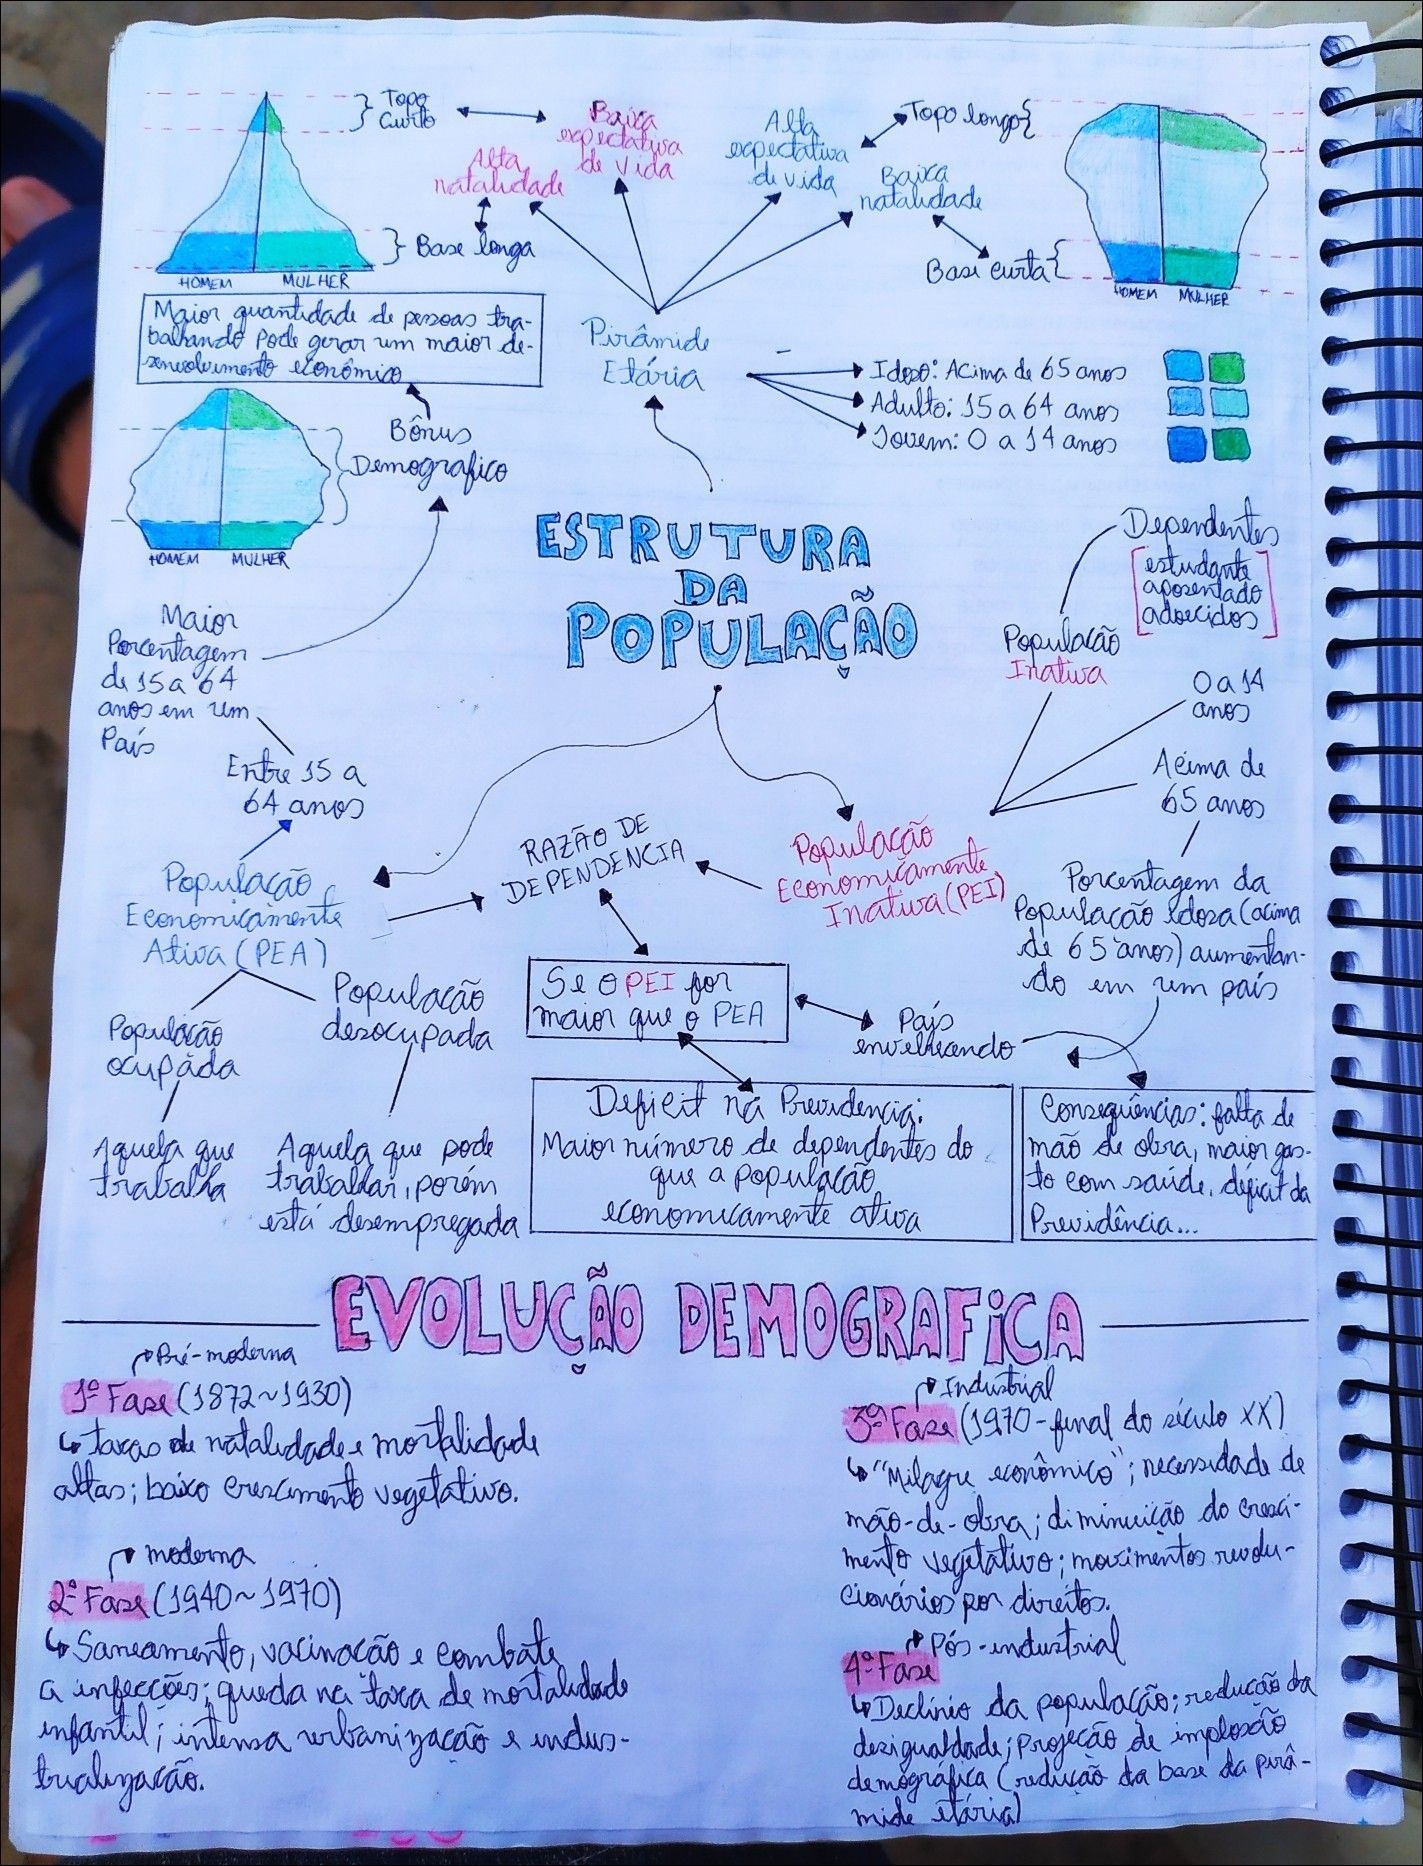 Topo
Curto
Baixa
expectativa
de vida
Alta
natalidade
Base longa
HOMEM MULHER
Alta
expectativa
de vida
Topo longo
Baixa
natalidade
Base curta
HOMEM MULHER
Maior quantidade de pessoas tra-
balhando pode gerar um maior de-
senvolvimento econômico
Pirâmide
Etária
Idoso: Acima de 65 anos
Adulto: 15 a 64 anos
Jovem: 0 a 14 anos
Bônus
Demografico
HOMEM MULHER
ESTRUTURA
DA
POPULAÇÃO
Dependentes
estudante
aposentado
adoecidos
População
Inativa
0 a 14
anos
Acima de
65 anos
Maior
Porcentagem
de 15 a 64
anos em um
País
Entre 15 a
64 anos
População
Economicamente
Ativa (PEA)
RAZÃO DE
DEPENDENCIA
População
Economicamente
Inativa (PEI)
Porcentagem da
População idosa (acima
de 65 anos) aumentan-
do em um país
População
ocupada
População
desocupada
Se o PEI for
maior que o PEA
País
envelhecendo
Aquela que
trabalha
Aquela que pode
trabalhar, porém
está desempregada
Deficit na Previdencia:
Maior número de dependentes do
que a população
economicamente ativa
Consequências: falta de
mão de obra, maior gas-
to com saúde, déficit da
Previdência...
EVOLUÇÃO DEMOGRAFICA
Pré-moderna
1ª Fase (1872~1930)
taxas de natalidade e mortalidade
altas; baixo crescimento vegetativo.
moderna
2ª Fase (1940~1970)
Saneamento, vacinação e combate
a infecções; queda na taxa de mortalidade
infantil; intensa urbanização e indus-
trialização.
Industrial
3ª Fase (1970-final do século XX)
"Milagre econômico"; necessidade de
mão-de-obra; diminuição do cresci-
mento vegetativo; movimentos revolu-
cionários por direitos.
Pós-industrial
4ª Fase
Declínio da população; redução da
desigualdade; projeção de implosão
demográfica (redução da base da pirâ-
mide etária)